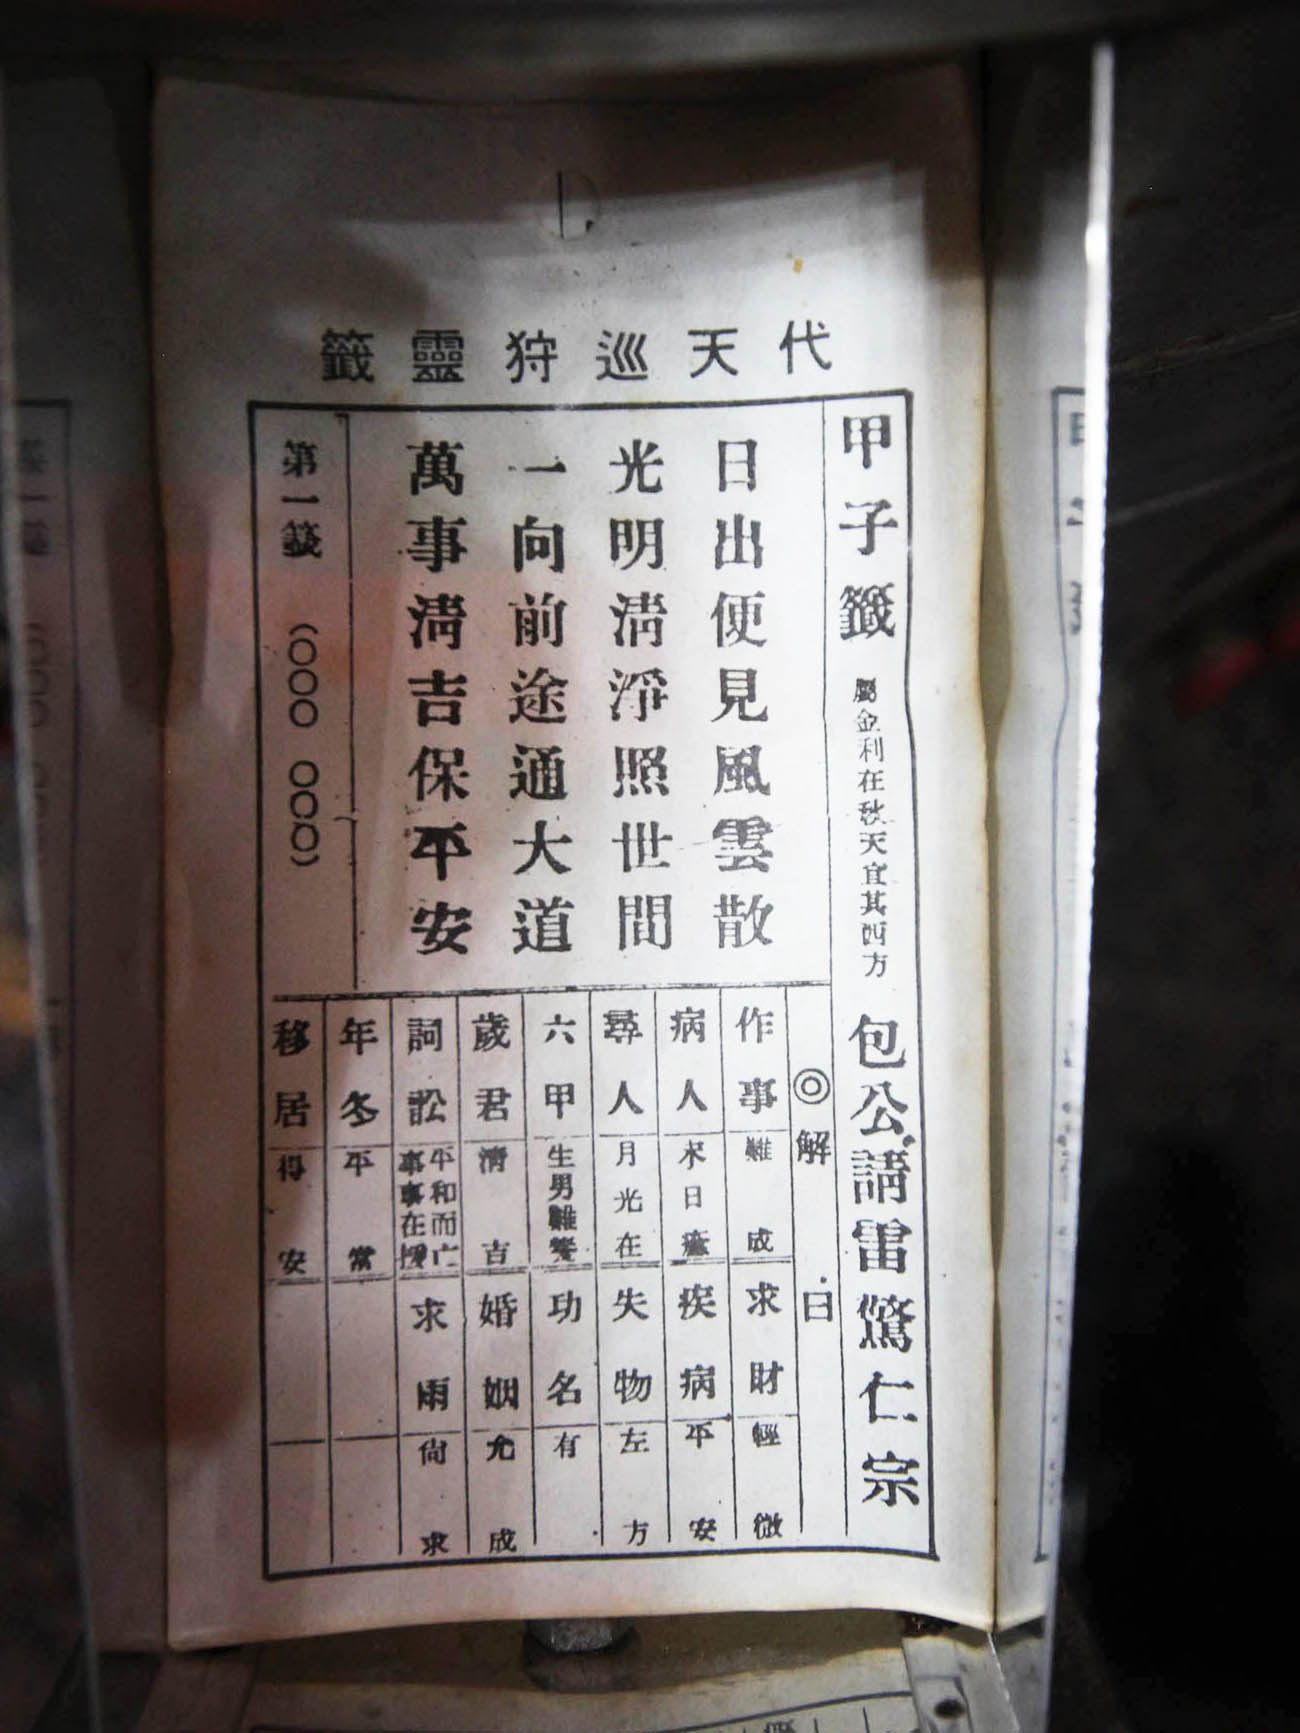 代天巡狩靈籤
甲子籤 屬金利在秋天宜其西方 包公請雷驚仁宗
日出便見風雲散
光明清淨照世間
一向前途通大道
萬事清吉保平安
第一籤 (○○○ ○○○)
◎解曰
作事 難成
求財 輕微
病人 未日痊
疾病 平安
尋人 月光在
失物 左方
六甲 生男難養
功名 有
歲君 清吉
婚姻 允成
詞訟 平和而亡 事事在援
求雨 尚求
年冬 平常
移居 得安